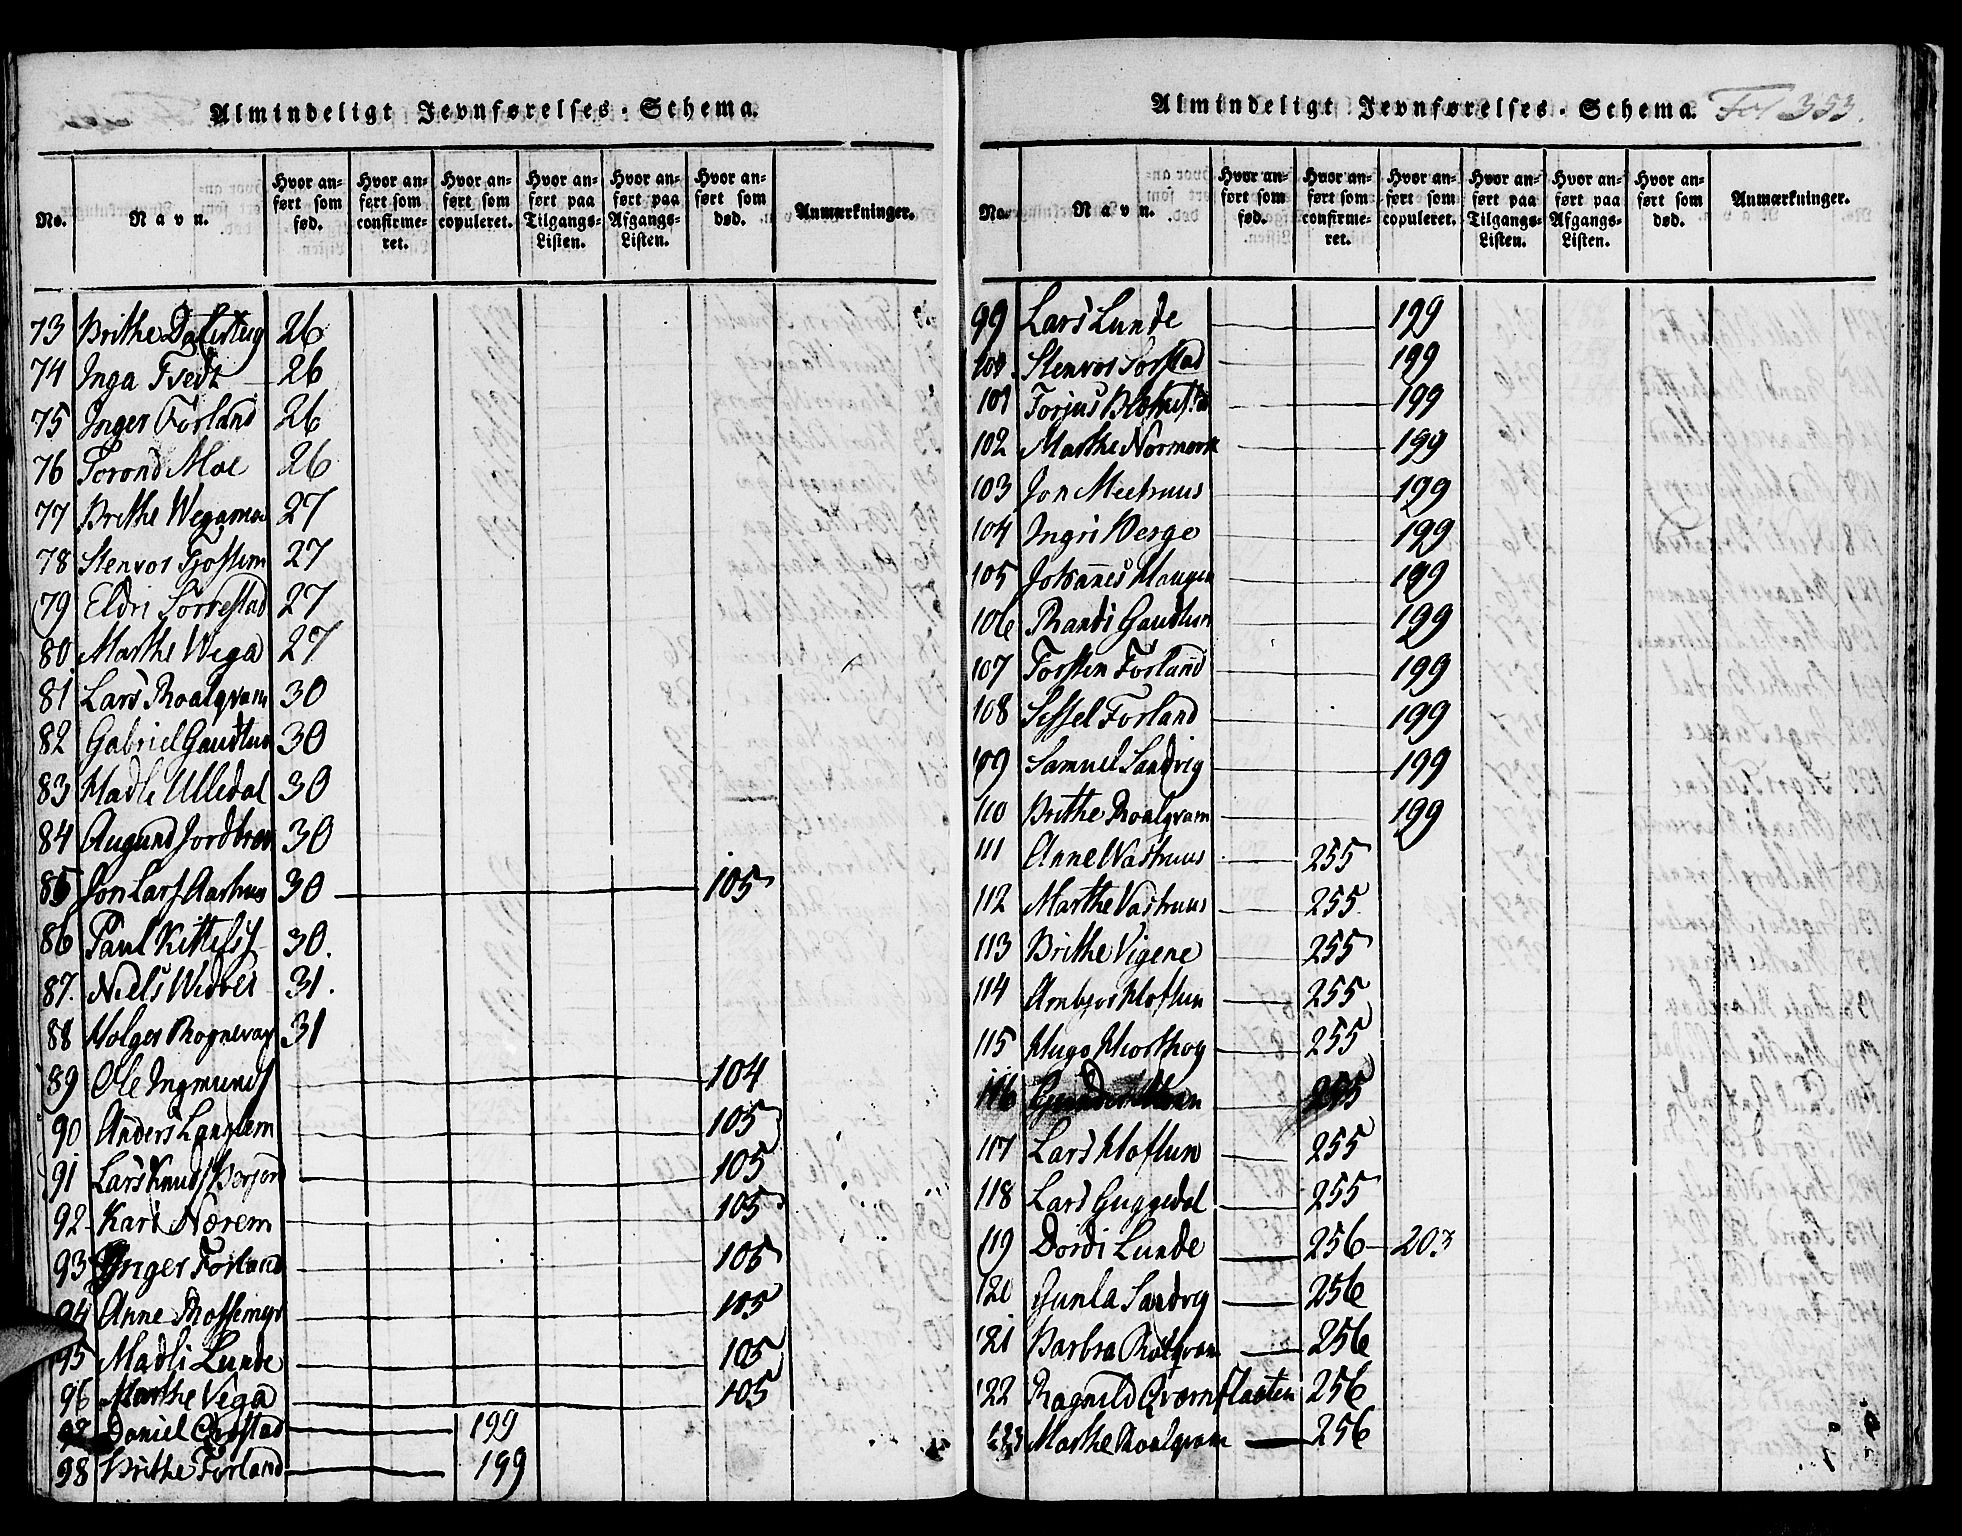 Almindeligt Jevnførelses-Schema.
No. Navn. Hvor anført som fød. Hvor anført som confirmeret. Hvor anført som copuleret. Hvor anført paa Tilgangs-Listen. Hvor anført paa Afgangs-Listen. Hvor anført som død. Anmærkninger.
73 Brithe 26
74 Inga Tvedt 26
75 Inger Forland 26
76 Torond Moe 26
77 Brithe Wegamoe 27
78 Stenvor Tjostem 27
79 Eldri Torrestad 27
80 Marthe Wega 27
81 Lars Roalqvam 30
82 Gabriel Gautlun 30
83 Hadle Ulledal 30
84 Augund Jordbræk 30
85 Jon Lars Aarhuus 30 105
86 Paul Kittels 30.
87. Niels Widber 31.
88 Holger 31
89 Ole Ingmunds 104
90 Anders 105
91 Lars Knuds 105
92 Kari Nærem 105
93 Inger Forland 105
94 Anne 105
95 Madli Lunde 105
96 Marthe Vega 105
97 Daniel 199
98 Brithe Forland 199
Almindeligt Jevnførelses-Schema. Fol 353.
No. Navn. Hvor anført som fød. Hvor anført som confirmeret. Hvor anført som copuleret. Hvor anført paa Tilgangs-Listen. Hvor anført paa Afgangs-Listen. Hvor anført som død. Anmærkninger.
99 Lars Lunde 199
100. Stenvor 199
101 Torjus 199
102 Marthe Nærmork 199
103 Jon Meehuus 199
104 Ingri Berge 199
105 Johannes Haugen 199
106 Randi Gautlun 199
107 Torsten Forland 199
108 Sissel Forland 199
109 Samuel Sandvig 199
110 Brithe Roalqvam 199
111 Anne Vashuus 255
112 Marthe Vashuus 255
113 Brithe Vigene 255
114 Ambjor Hoftun 255
115 Hugo Hiorthoy 255
116 255
117 Lars Hoftun 255
118 Lars Guggedal 255
119 Dordi Lunde 256 203
120 Gunla Sandvig 256
121 Barbra Roalqvam 256
122 Ragnild Qværnflaaten 256
123 Marthe Roalqvam 256